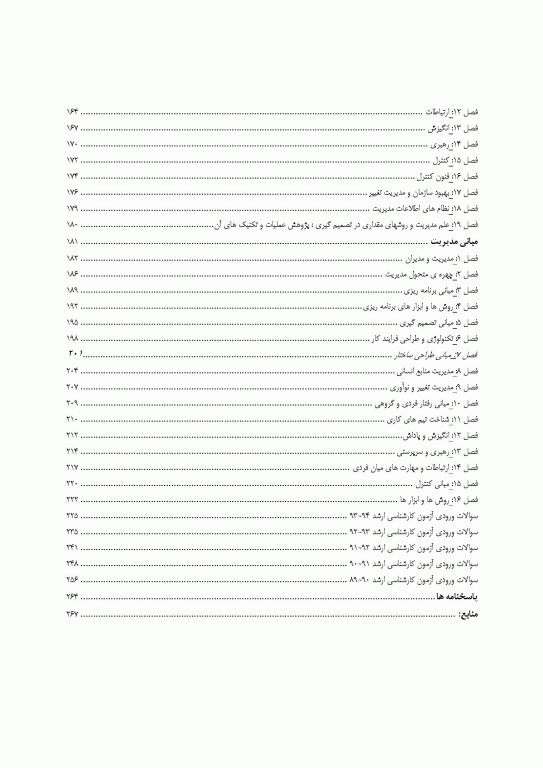 فصل ۱۲: ارتباطات ........ ۱۶۴
فصل ۱۳: انگیزش ........ ۱۶۷
فصل ۱۴: رهبری ........ ۱۷۰
فصل ۱۵: کنترل ........ ۱۷۲
فصل ۱۶: فنون کنترل ........ ۱۷۴
فصل ۱۷: بهبود سازمان و مدیریت تغییر ........ ۱۷۶
فصل ۱۸: نظام های اطلاعات مدیریت ........ ۱۷۹
فصل ۱۹: علم مدیریت و روشهای مقداری در تصمیم گیری : پژوهش عملیات و تکنیک های آن ........ ۱۸۰
مبانی مدیریت ........ ۱۸۱
فصل ۱: مدیریت و مدیران ........ ۱۸۲
فصل ۲: چهره ی متحول مدیریت ........ ۱۸۶
فصل ۳: مبانی برنامه ریزی ........ ۱۸۹
فصل ۴: روش ها و ابزار های برنامه ریزی ........ ۱۹۲
فصل ۵: مبانی تصمیم گیری ........ ۱۹۵
فصل ۶: تکنولوژی و طراحی فرایند کار ........ ۱۹۸
فصل ۷: مبانی طراحی ساختار ........ ۲۰۱
فصل ۸: مدیریت منابع انسانی ........ ۲۰۴
فصل ۹: مدیریت تغییر و نوآوری ........ ۲۰۷
فصل ۱۰: مبانی رفتار فردی و گروهی ........ ۲۰۹
فصل ۱۱: شناخت تیم های کاری ........ ۲۱۰
فصل ۱۲: انگیزش و پاداش ........ ۲۱۲
فصل ۱۳: رهبری و سرپرستی ........ ۲۱۴
فصل ۱۴: ارتباطات و مهارت های میان فردی ........ ۲۱۷
فصل ۱۵: مبانی کنترل ........ ۲۲۰
فصل ۱۶: روش ها و ابزار ها ........ ۲۲۲
سوالات ورودی آزمون کارشناسی ارشد ۹۴-۹۳ ........ ۲۲۵
سوالات ورودی آزمون کارشناسی ارشد ۹۳-۹۲ ........ ۲۳۵
سوالات ورودی آزمون کارشناسی ارشد ۹۲-۹۱ ........ ۲۴۱
سوالات ورودی آزمون کارشناسی ارشد ۹۱-۹۰ ........ ۲۴۸
سوالات ورودی آزمون کارشناسی ارشد ۹۰-۸۹ ........ ۲۵۶
پاسخنامه ها ........ ۲۶۴
منابع: ........ ۲۶۷